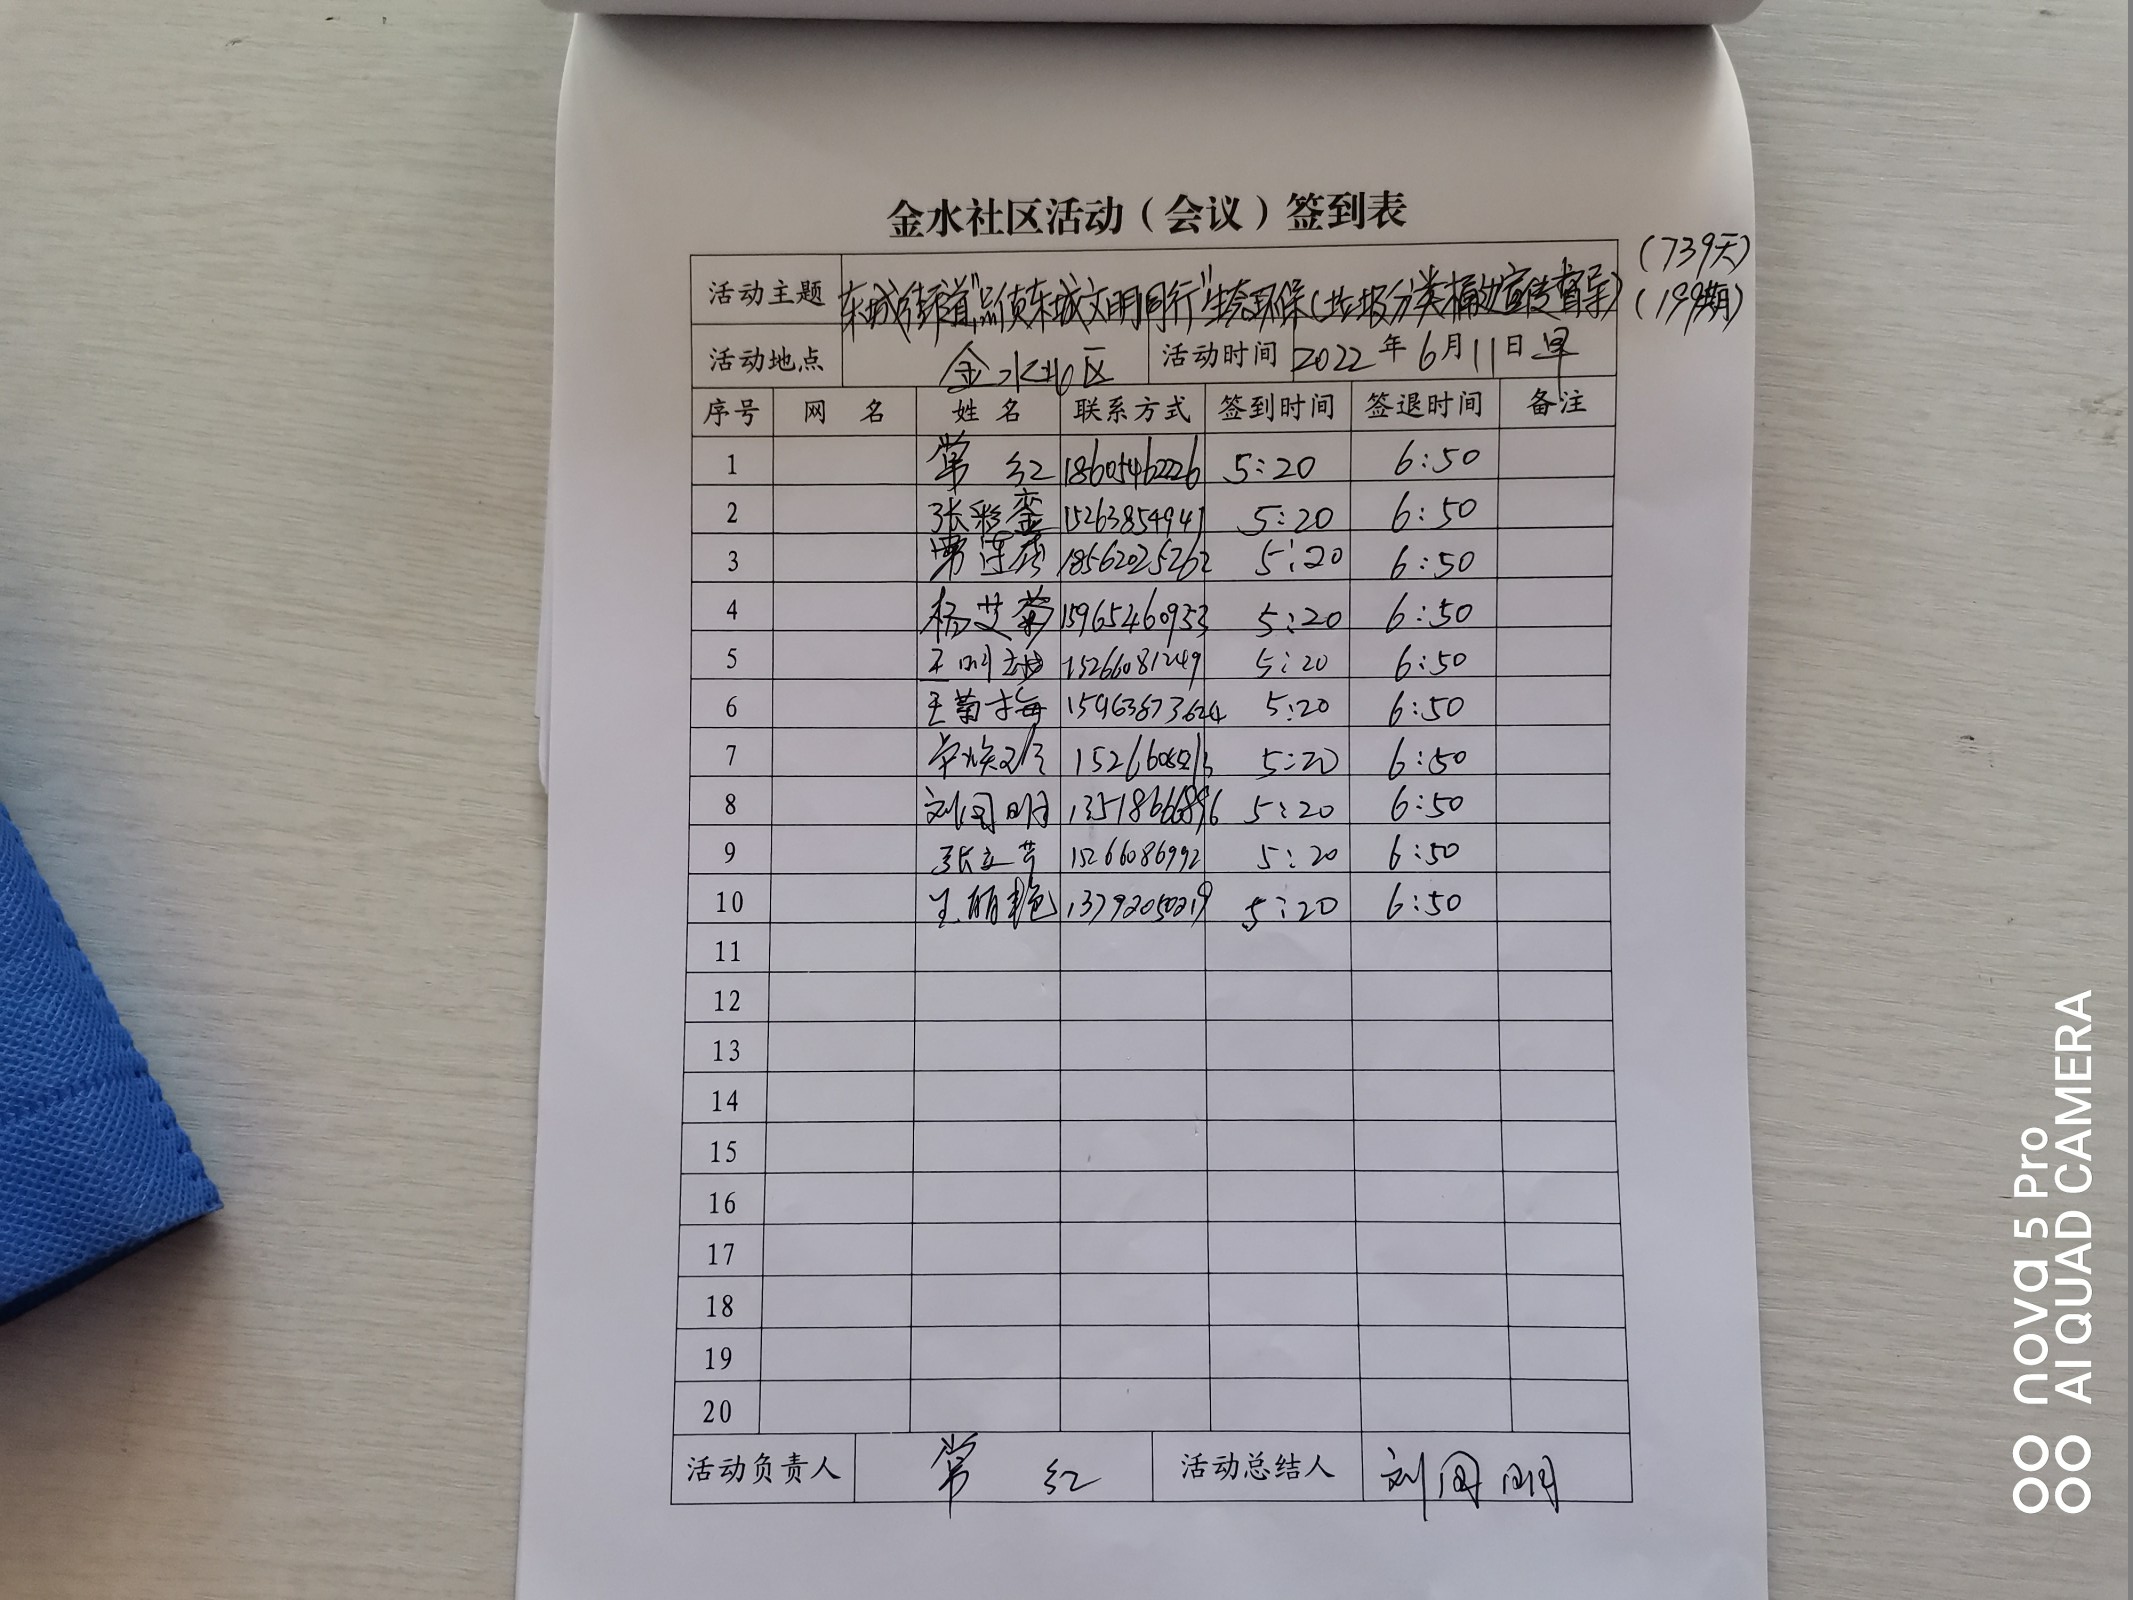 金水社区活动（会议）签到表
(739天)
活动主题 东城街道"品质东城文明同行"生态环保(垃圾分类桶边宣传督导) (199期)
活动地点 金水北区 活动时间 2022年6月11日早
序号 网 名 姓 名 联系方式 签到时间 签退时间 备注
1 常 红 18605462226 5:20 6:50
2 张彩銮 15263854941 5:20 6:50
3 18562025262 5:20 6:50
4 杨艾菊 15965460933 5:20 6:50
5 王 15266081249 5:20 6:50
6 王菊梅 15963873624 5:20 6:50
7 5:20 6:50
8 刘同明 13518666896 5:20 6:50
9 张立芹 15266086992 5:20 6:50
10 王丽艳 13792050219 5:20 6:50
11
12
13
14
15
16
17
18
19
20
活动负责人 常 红 活动总结人 刘同明
nova 5 Pro
AI QUAD CAMERA